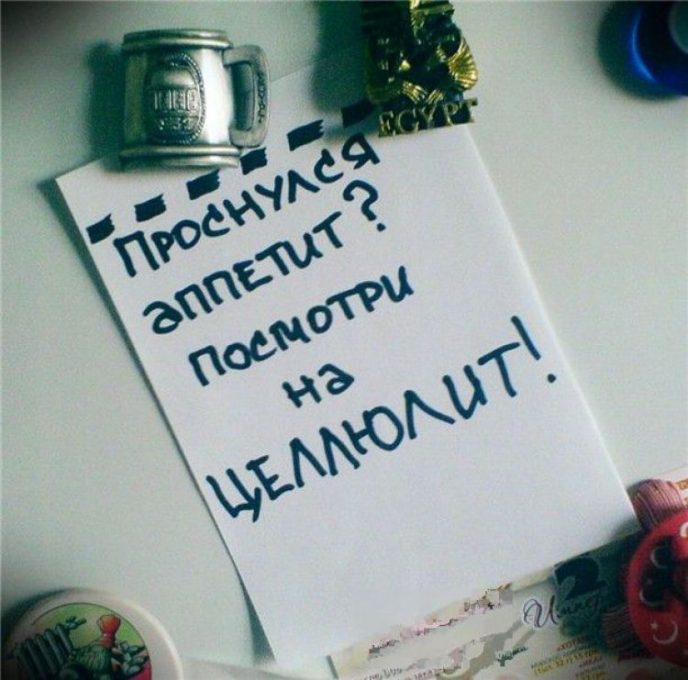 EGYPT
ПРОСНУЛСЯ
аППЕТИТ?
ПОСМОТРИ
На
ЦЕЛЛЮЛИТ!